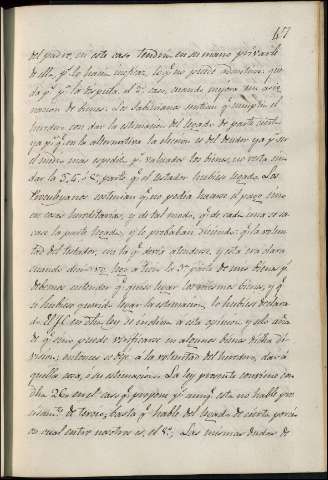 47
del padre, en este caso tendria en su mano privarle
de ella, pr. lo haria mejor, lo qe. no puede admitirse: que
da pr. pr. la disputa el 3.r caso, cuando mejora con asig
nacion de bienes. Los Sabinianos sentian qe. cumplia el
heredero con dar la estimacion del legado de parte cierta
ya pr. qe. en la alternativa la eleccion es del deudor ya pr. ser
el medio mas espedito pr. valuados los bienes, no resta sino
dar la 3.a, 4.a ó 8.a parte qe. el testador hubiese legado. Los
Proculeyanos sostenian qe. no podia hacerse el pago sino
en cosas hereditarias, y de tal modo, qe. de cada una se sa
case la parte legada, y lo probaban diciendo: qe. la volun
tad del testador, era la qe. devia atenderse, y esta era clara
cuando decia: yo lego á Juan la 3.a parte de mis bienes pr.
debemos entender qe. quiso legar los mismos bienes, y qe.
si hubiese querido legar la estimacion, lo hubiese declara
do. El J.C. en dha. ley se inclina á esta opinion, y solo añade
qe. como puede verificarse en algunos bienes dicha di
vision, entonces se deje á la voluntad del heredero, dar á
aquella cosa, ó su estimacion. La ley presente conviene con
dha. 26 en el caso qe. propone pr. aunqe. esta no hable pre
cisamte. de tercio, basta qe. hable del legado de cierta porci
on cual entre nosotros es, el 3.º, Las mismas dudas de